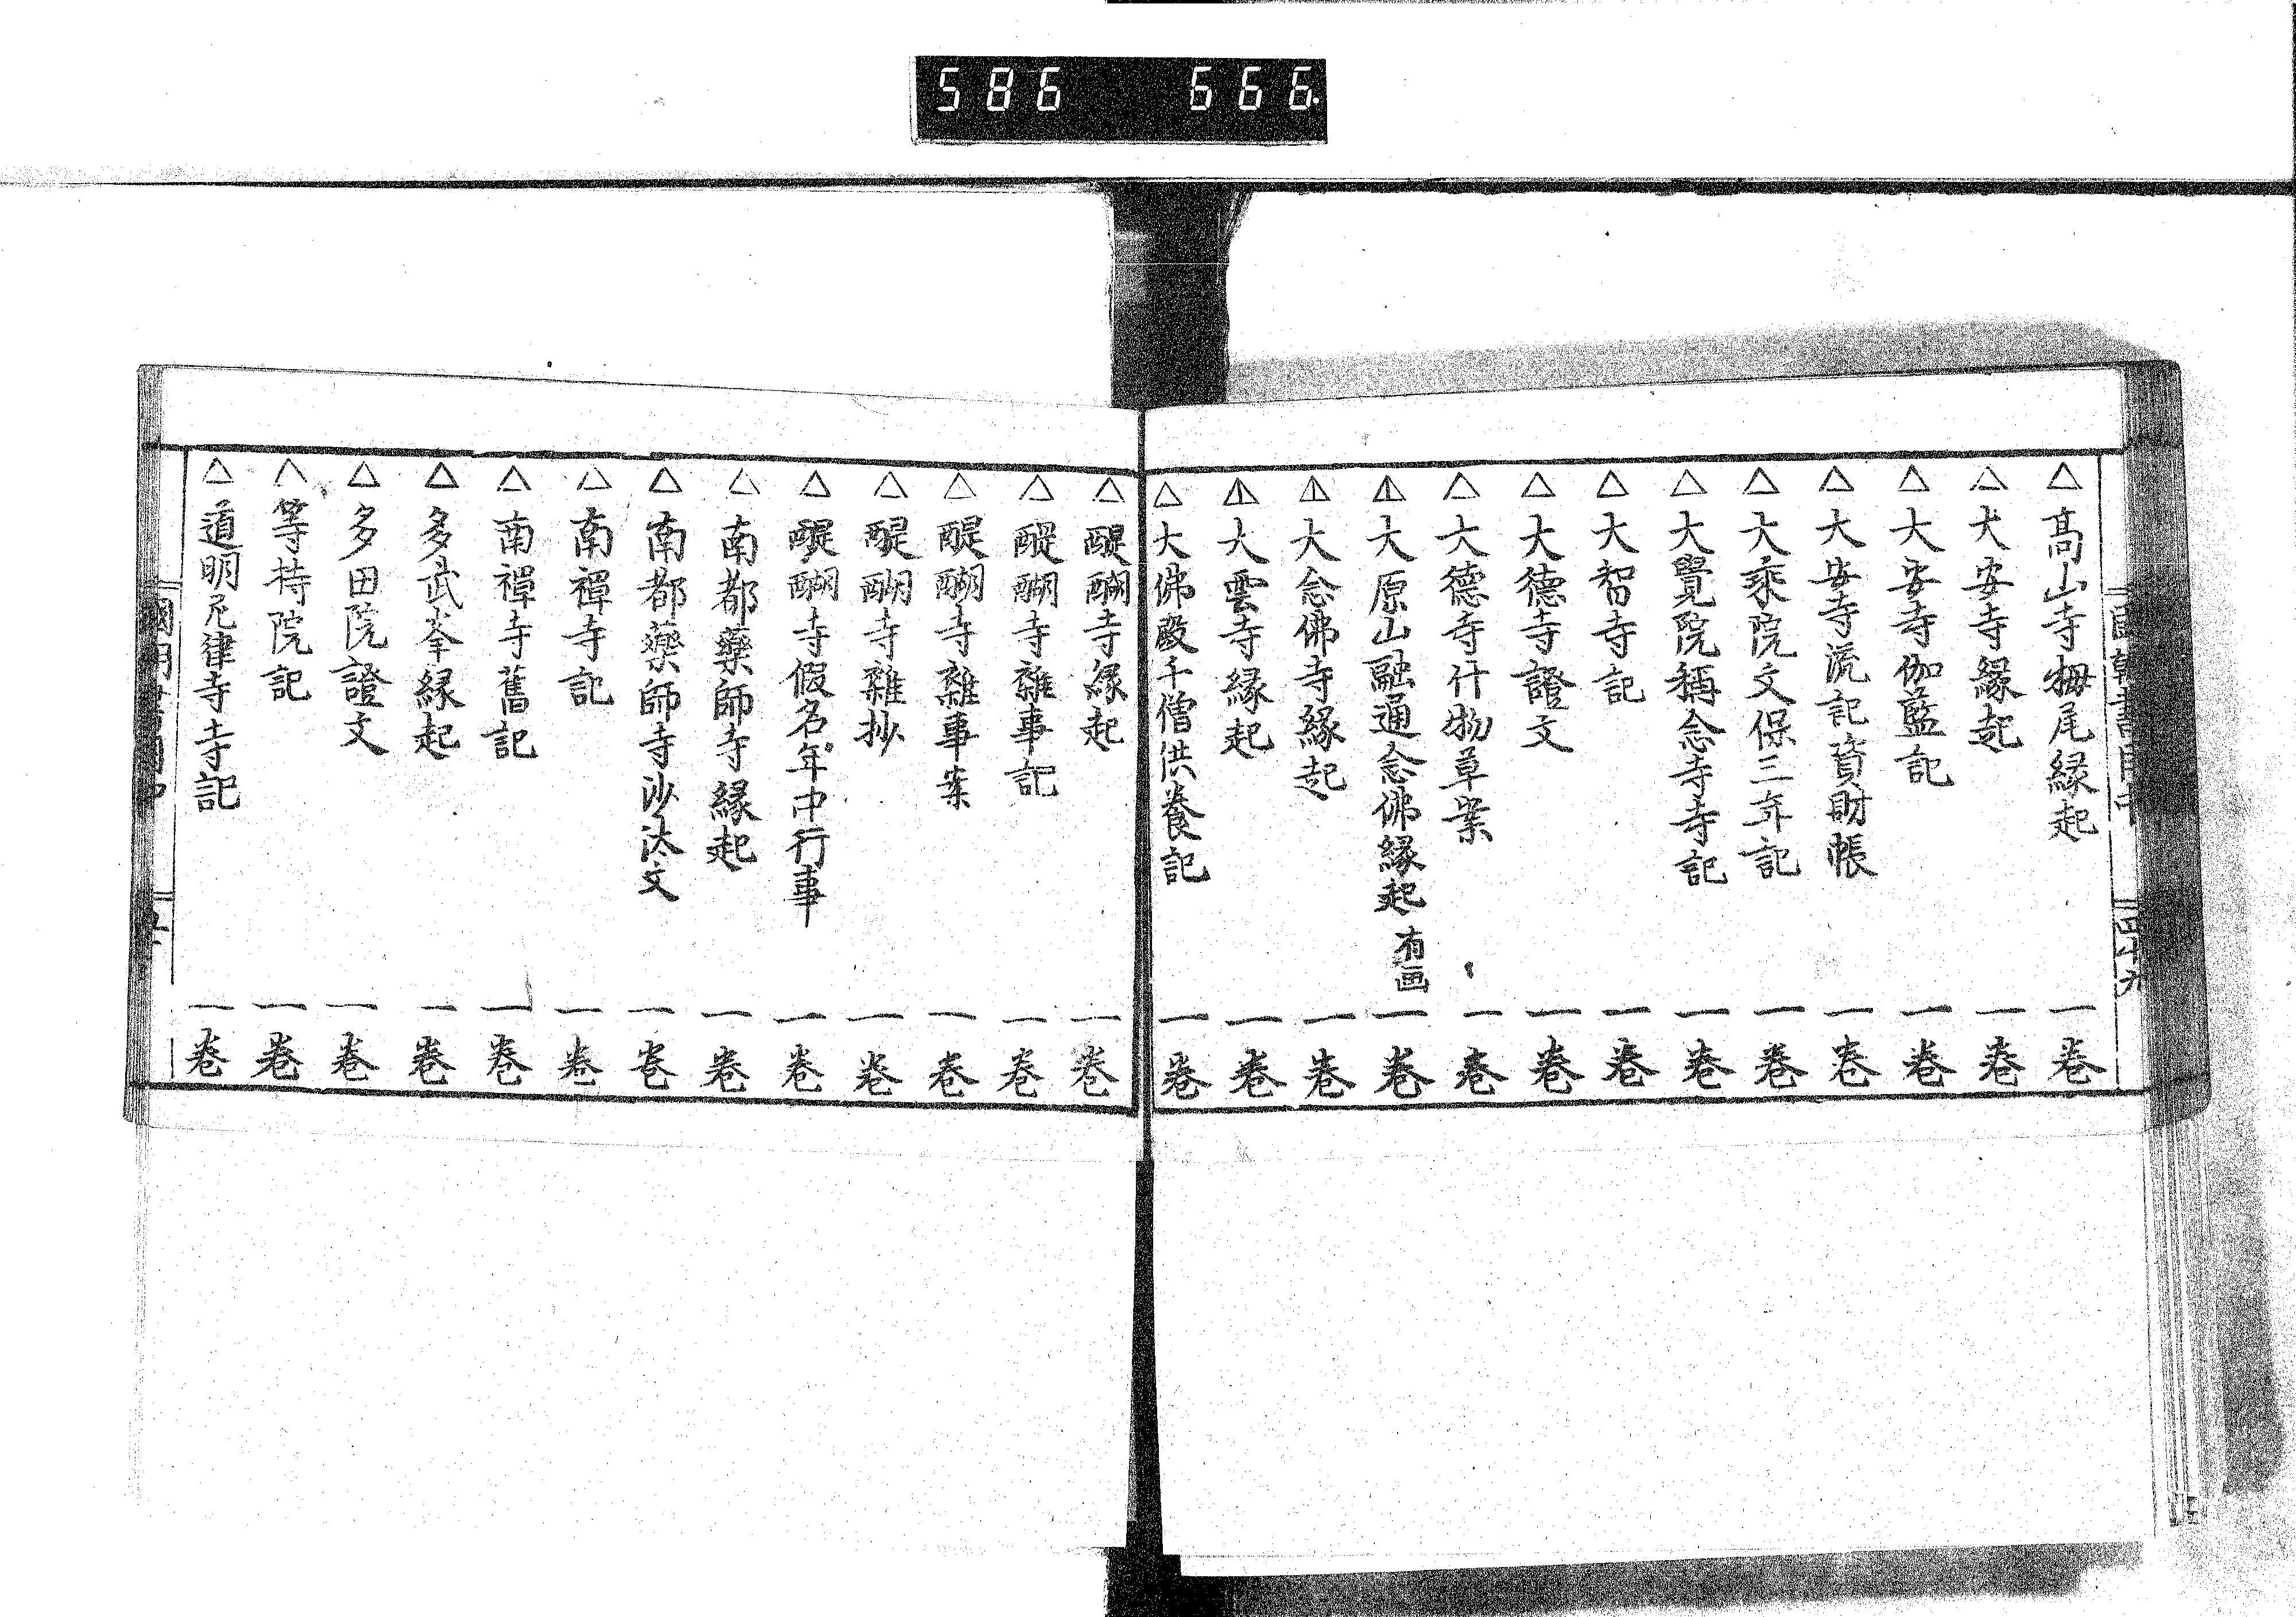 586 666.
△高山寺栂尾縁起 一卷
△大安寺縁起 一卷
△大安寺伽藍記 一卷
△大安寺流記資財帳 一卷
△大乘院文保三年記 一卷
△大覺院稱念寺寺記 一卷
△大智寺記 一卷
△大德寺證文 一卷
△大德寺什物草案 一卷
△大原山融通念佛縁起 有画 一卷
△大念佛寺縁起 一卷
△大雲寺縁起 一卷
△大佛殿千僧供養記 一卷
△醍醐寺縁起 一卷
△醍醐寺雜事記 一卷
△醍醐寺雜事案 一卷
△醍醐寺雜抄 一卷
△醍醐寺假名年中行事 一卷
△南都藥師寺縁起 一卷
△南都藥師寺沙汰文 一卷
△南禪寺記 一卷
△南禪寺舊記 一卷
△多武峯縁起 一卷
△多田院證文 一卷
△等持院記 一卷
△道明尼律寺寺記 一卷